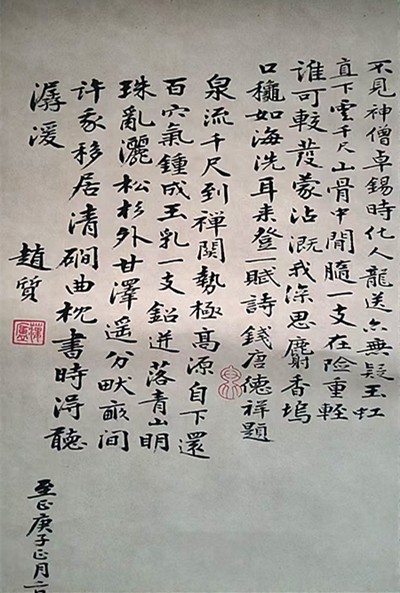 不見神僧卓錫時化人龍送亦無疑玉虹
直下雲千尺山骨中開髓一支在險重輕
誰可較發蒙沾溉我深思麝香塢
口穐如海洗耳来登一賦詩錢唐德祥題
泉流千尺到禪関勢極髙源自下還
百穴氣鍾成玉乳一支鉛迸落青山明
珠亂灑松杉外甘澤遥分畎畝间
许我移居清磵曲枕書時淂聽
潺湲
趙質
至正庚子正月二日